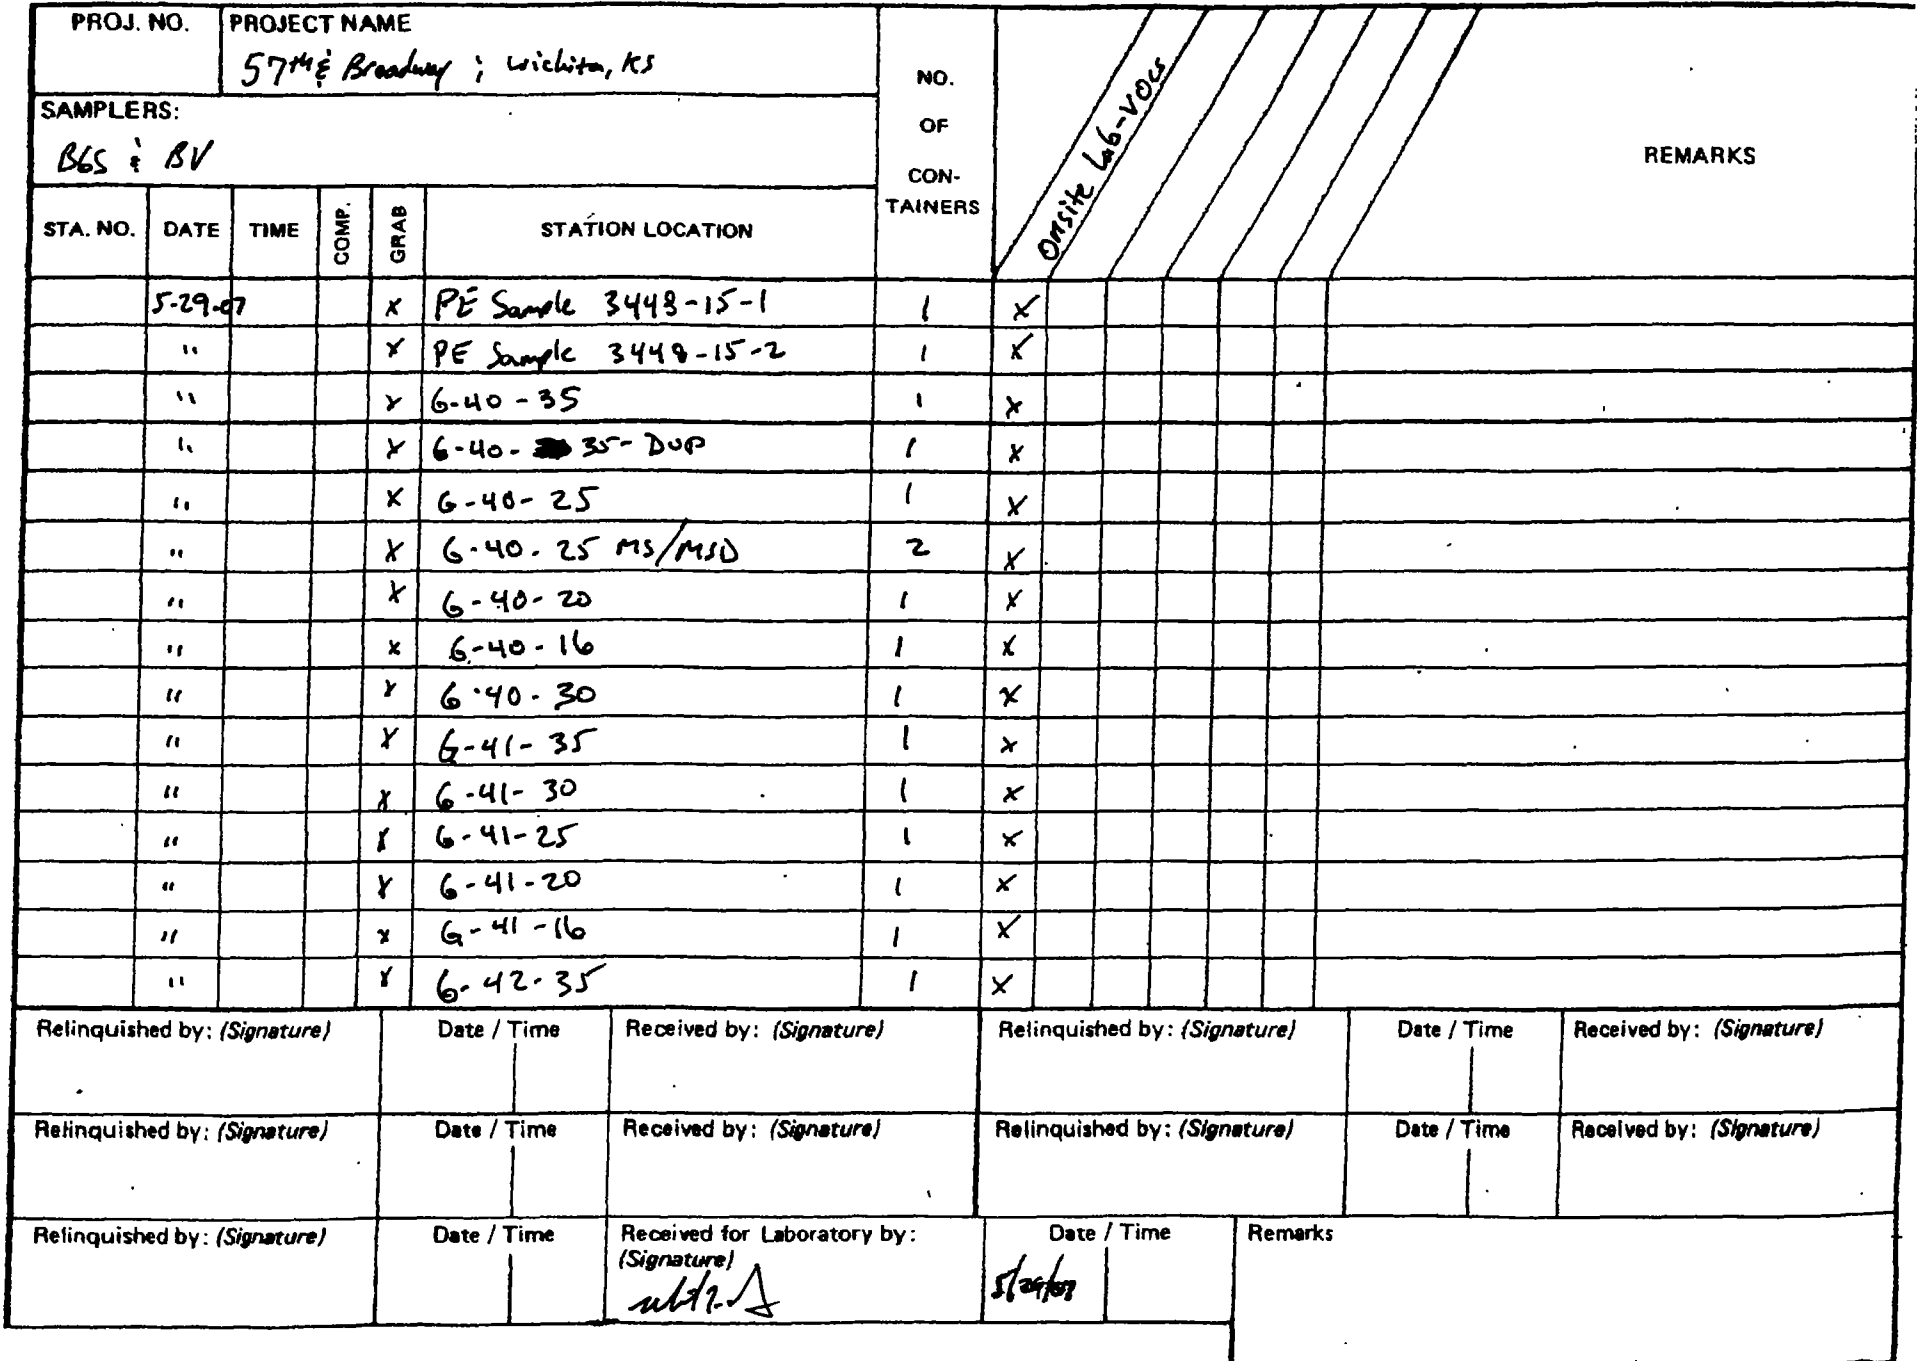 PROJ. NO. PROJECT NAME
57th & Broadway ; Wichita, KS
SAMPLERS:
BGS & BV
NO.
OF
CON-
TAINERS
Onsite Lab-VOCs
REMARKS
STA. NO. DATE TIME COMP. GRAB STATION LOCATION
5-29-07 x PE Sample 3448-15-1 1 x
" x PE Sample 3448-15-2 1 x
" x G-40-35 1 x
" x G-40- 35-DUP 1 x
" x G-40-25 1 x
" x G-40-25 MS/MSD 2 x
" x G-40-20 1 x
" x G-40-16 1 x
" x G-40-30 1 x
" x G-41-35 1 x
" x G-41-30 1 x
" x G-41-25 1 x
" x G-41-20 1 x
" x G-41-16 1 x
" x G-42-35 1 x
Relinquished by: (Signature) Date / Time Received by: (Signature) Relinquished by: (Signature) Date / Time Received by: (Signature)
Relinquished by: (Signature) Date / Time Received by: (Signature) Relinquished by: (Signature) Date / Time Received by: (Signature)
Relinquished by: (Signature) Date / Time Received for Laboratory by: Date / Time Remarks
(Signature)
5/29/07